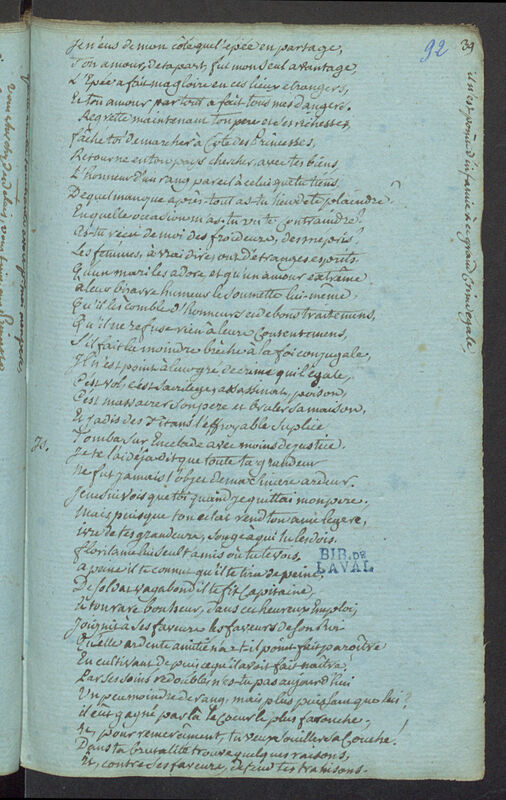 92 39
Je n'eus de mon côté que l'épée en partage,
Ton amour, de ta part, fut mon seul avantage,
L'Epée a fait ma gloire en ces lieux etrangers,
Et ton amour par tout a fait tous mes dangers.
Regrette maintenant ton pere et ses richesses,
fâche toi de marcher à Coté des Princesses,
Retourne en ton pays chercher, avec tes biens
L'honneur d'un rang pareil à celui que tu tiens.
De quel manque apres tout as-tu lieu de te plaindre?
En quelle occasion m'as-tu vu te Contraindre?
As-tu reçu de moi des froideurs, des mepris?
Les femmes, à vrai dire, ont d'etranges esprits
Qu'un mari les adore, et qu'un amour extrême
à leur bizarre humeur le soumette lui-même,
Qu'il les comble d'honneurs et de bons traitemens,
Qu'il ne refuse rien à leurs Contentemens,
S'il fait la moindre brêche à la foi conjugale,
Il n'est point à leur gré de crime qui l'égale,
C'est vol, c'est sacrilege, assassinat, poison,
C'est massacrer son pere et bruler sa maison,
Et jadis des Titans l'effroyable Suplice
Tomba sur Encelade avec moins de justice.
Is. Je te l'ai déja dit que toute ta grandeur
Ne fut jamais l'objet de ma sincere ardeur.
Je ne suivois que toi quand je quittai mon pere.
Mais puisque ton eclat rend ton ame legere,
ivre de tes grandeurs, songe à qui tu les dois.
florilame lui seul t'a mis où tu te vois.
à peine il te connut qu'il te tira de peine,
De soldat vagabond il te fit Capitaine,
et ton rare bonheur, dans cet heureux Emploi,
Joignit à ses faveurs les faveurs de son Roi
Quelle ardente amitié n'a-t-il point fait paroître
En cultivant depuis ce qu'il avoit fait naître,
Par ses soins redoublés n'es-tu pas aujourd'hui
Un peu moindre de rang, mais plus puissant que lui?
il eût gagné par là le Coeur le plus farouche;
et, pour remerciment, tu veux souiller sa Couche!
Dans ta brutalité trouve quelques raisons,
Et, contre ses faveurs, defend tes trahisons.
il n'est point d'infamie à ce grand Crime egale
BIB. DE
LAVAL